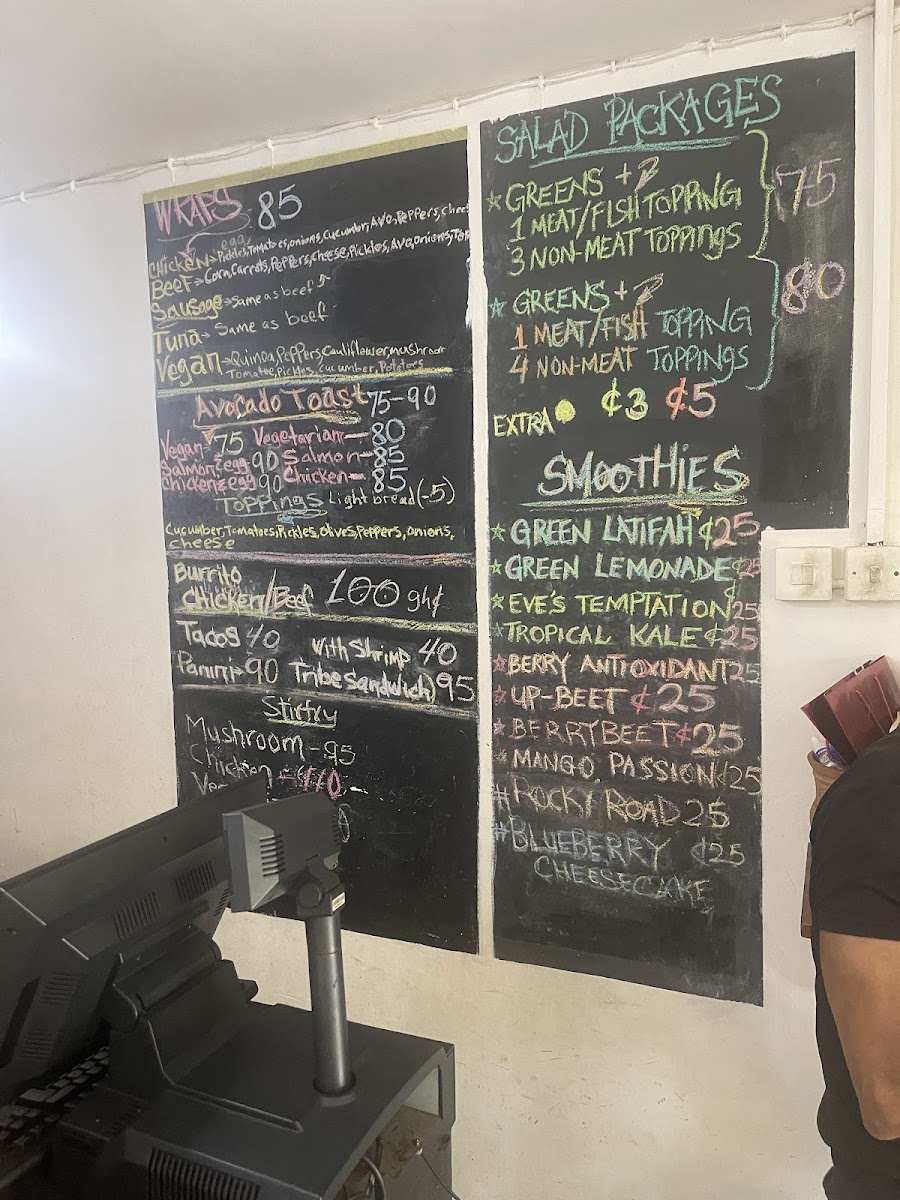 WRAPS 85
egg,
Chicken → Pickles, Tomatoes, onions, Cucumber, Avo, Peppers, chees
Beef → Corn, Carrots, Peppers, Cheese, Pickles, Avo, onions, Tom
Sausage → Same as beef
Tuna → Same as beef
Vegan → Quinoa, Peppers, Cauliflower, mushroom
Tomatoe, Pickles, Cucumber, Potatoes
Avocado Toast 75-90
Vegan - 75 Vegetarian - 80
Salmon & egg - 90 Salmon - 85
Chicken & egg 90 Chicken - 85
Toppings Light bread (-5)
Cucumber, Tomatoes, Pickles, Olives, Peppers, onions,
cheese
Burrito
Chicken/Beef 100 gh¢
Tacos 40 with Shrimp 40
Panini - 90 Tribe Sandwich) 95
Stirfry
Mushroom - 95
Chicken
Ve
SALAD PACKAGES
GREENS +
1 MEAT/FISH TOPPING
3 NON-MEAT TOPPINGS
75
GREENS +
1 MEAT/FISH TOPPING
4 NON-MEAT TOPPINGS
80
EXTRA ¢3 ¢5
SMOOTHIES
GREEN LATIFAH ¢25
GREEN LEMONADE ¢25
EVE'S TEMPTATION ¢25
TROPICAL KALE ¢25
BERRY ANTIOXIDANT 25
UP-BEET ¢25
BERRY BEET ¢25
MANGO PASSION ¢25
ROCKY ROAD 25
BLUEBERRY ¢25
CHEESECAKE